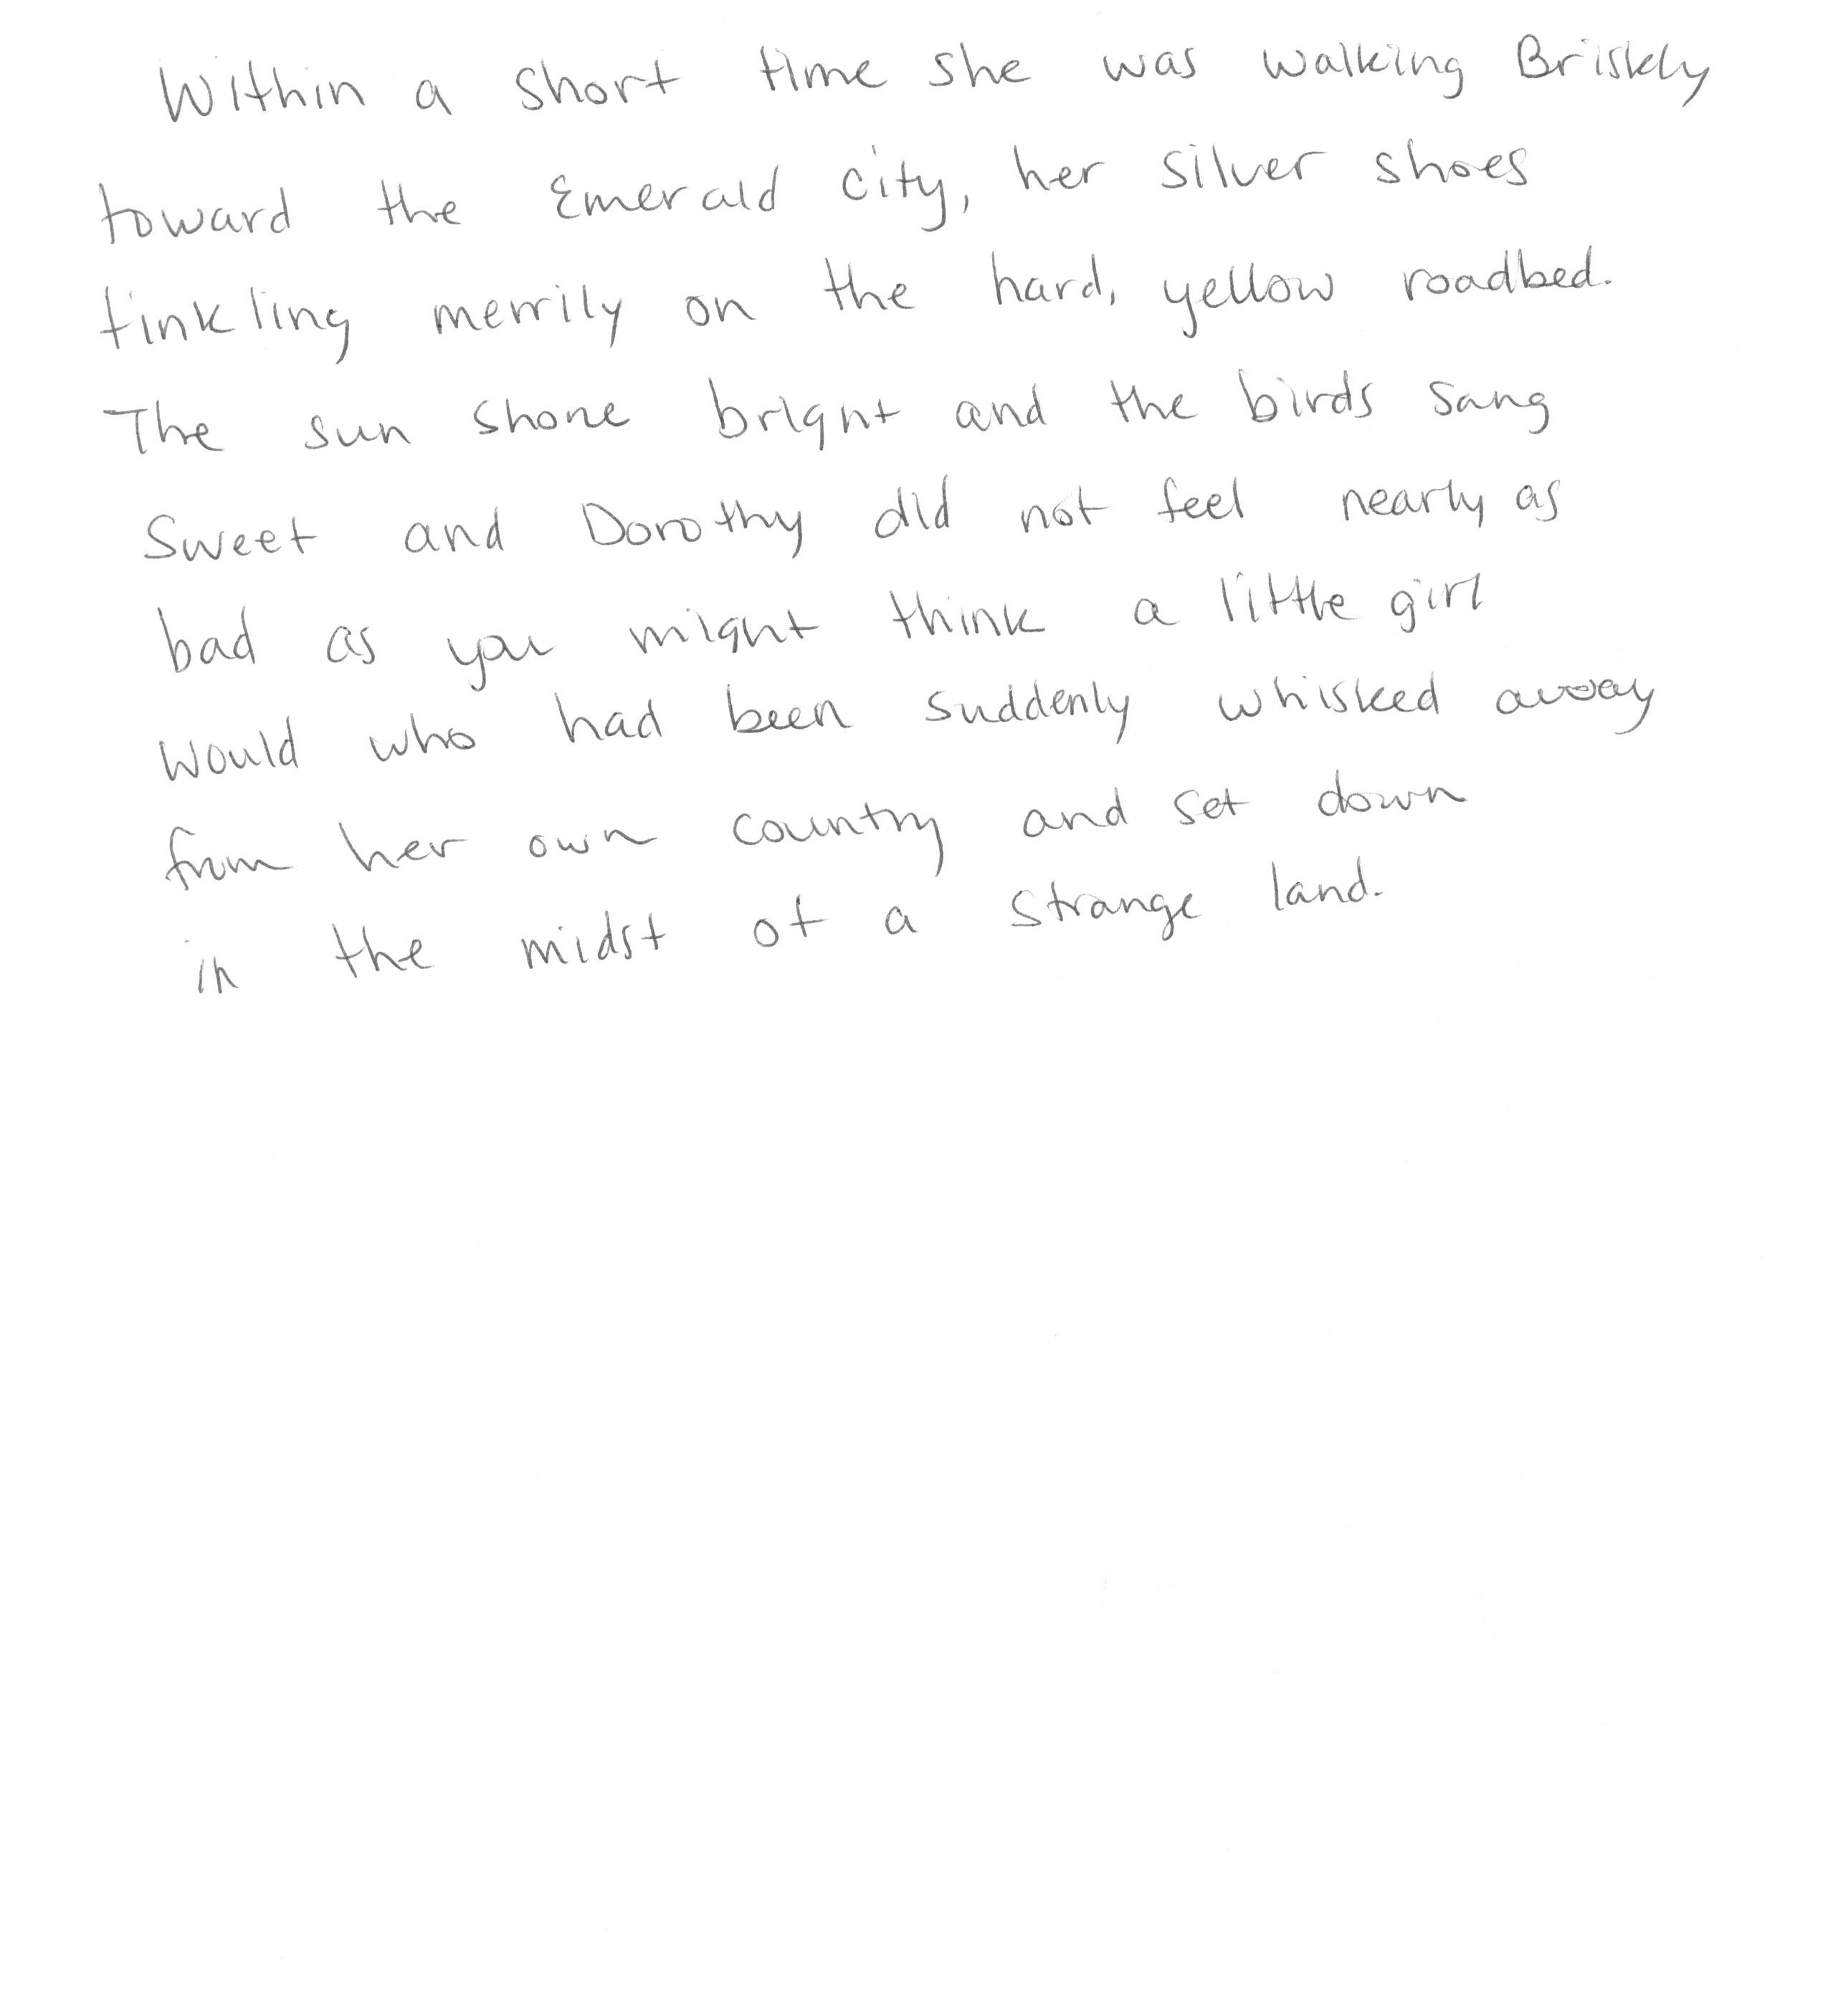 Within a short time she was walking Briskly
toward the Emerald city, her silver shoes
tinkling merrily on the hard, yellow roadbed.
The sun shone bright and the birds sang
Sweet and Dorothy did not feel nearly as
bad as you might think a little girl
would who had been suddenly whisked away
from her own country and set down
in the midst of a strange land.